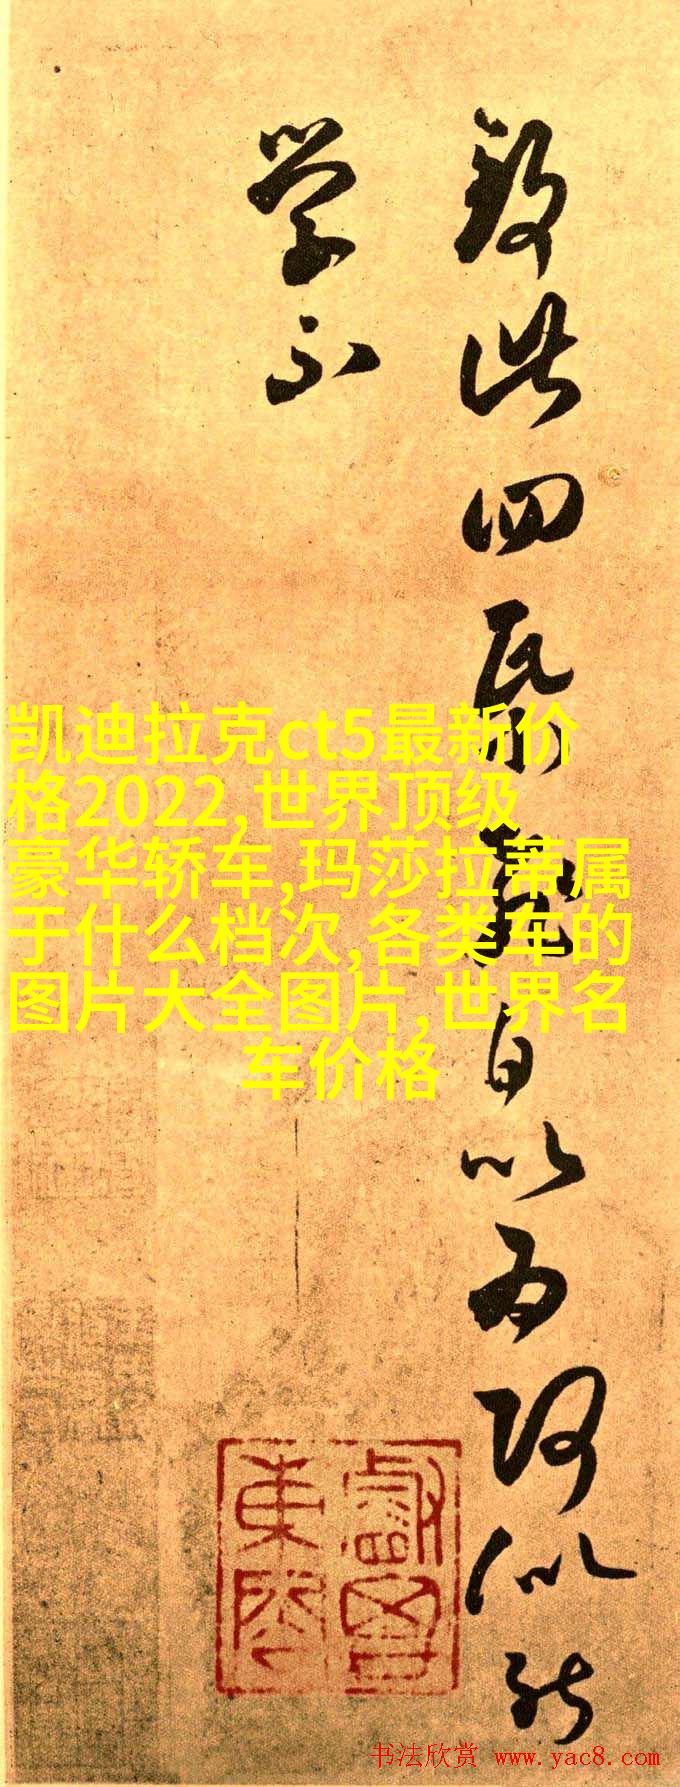 此四
自以为
似能
学不
凯迪拉克ct5最新价
格2022,世界顶级
豪华轿车,玛莎拉蒂属
于什么档次,各类车的
图片大全图片,世界名
车价格
書法欣赏 www.yac8.com